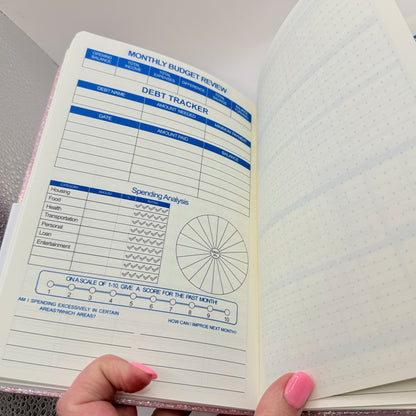 MONTHLY BUDGET REVIEW
OPENING BALANCE TOTAL INCOME TOTAL EXPENSES DIFFERENCE
DEBT TRACKER
DEBT NAME AMOUNT NEEDED
DATE AMOUNT PAID BALANCE
Spending Analysis
CATEGORY
Housing
Food
Health
Transportation
Personal
Loan
Entertainment
ON A SCALE OF 1-10, GIVE A SCORE FOR THE PAST MONTH!
1 2 3 4 5 6 7 8 9 10
AM I SPENDING EXCESSIVELY IN CERTAIN
AREAS?WHICH AREAS?
HOW CAN I IMPROE NEXT MONTH?